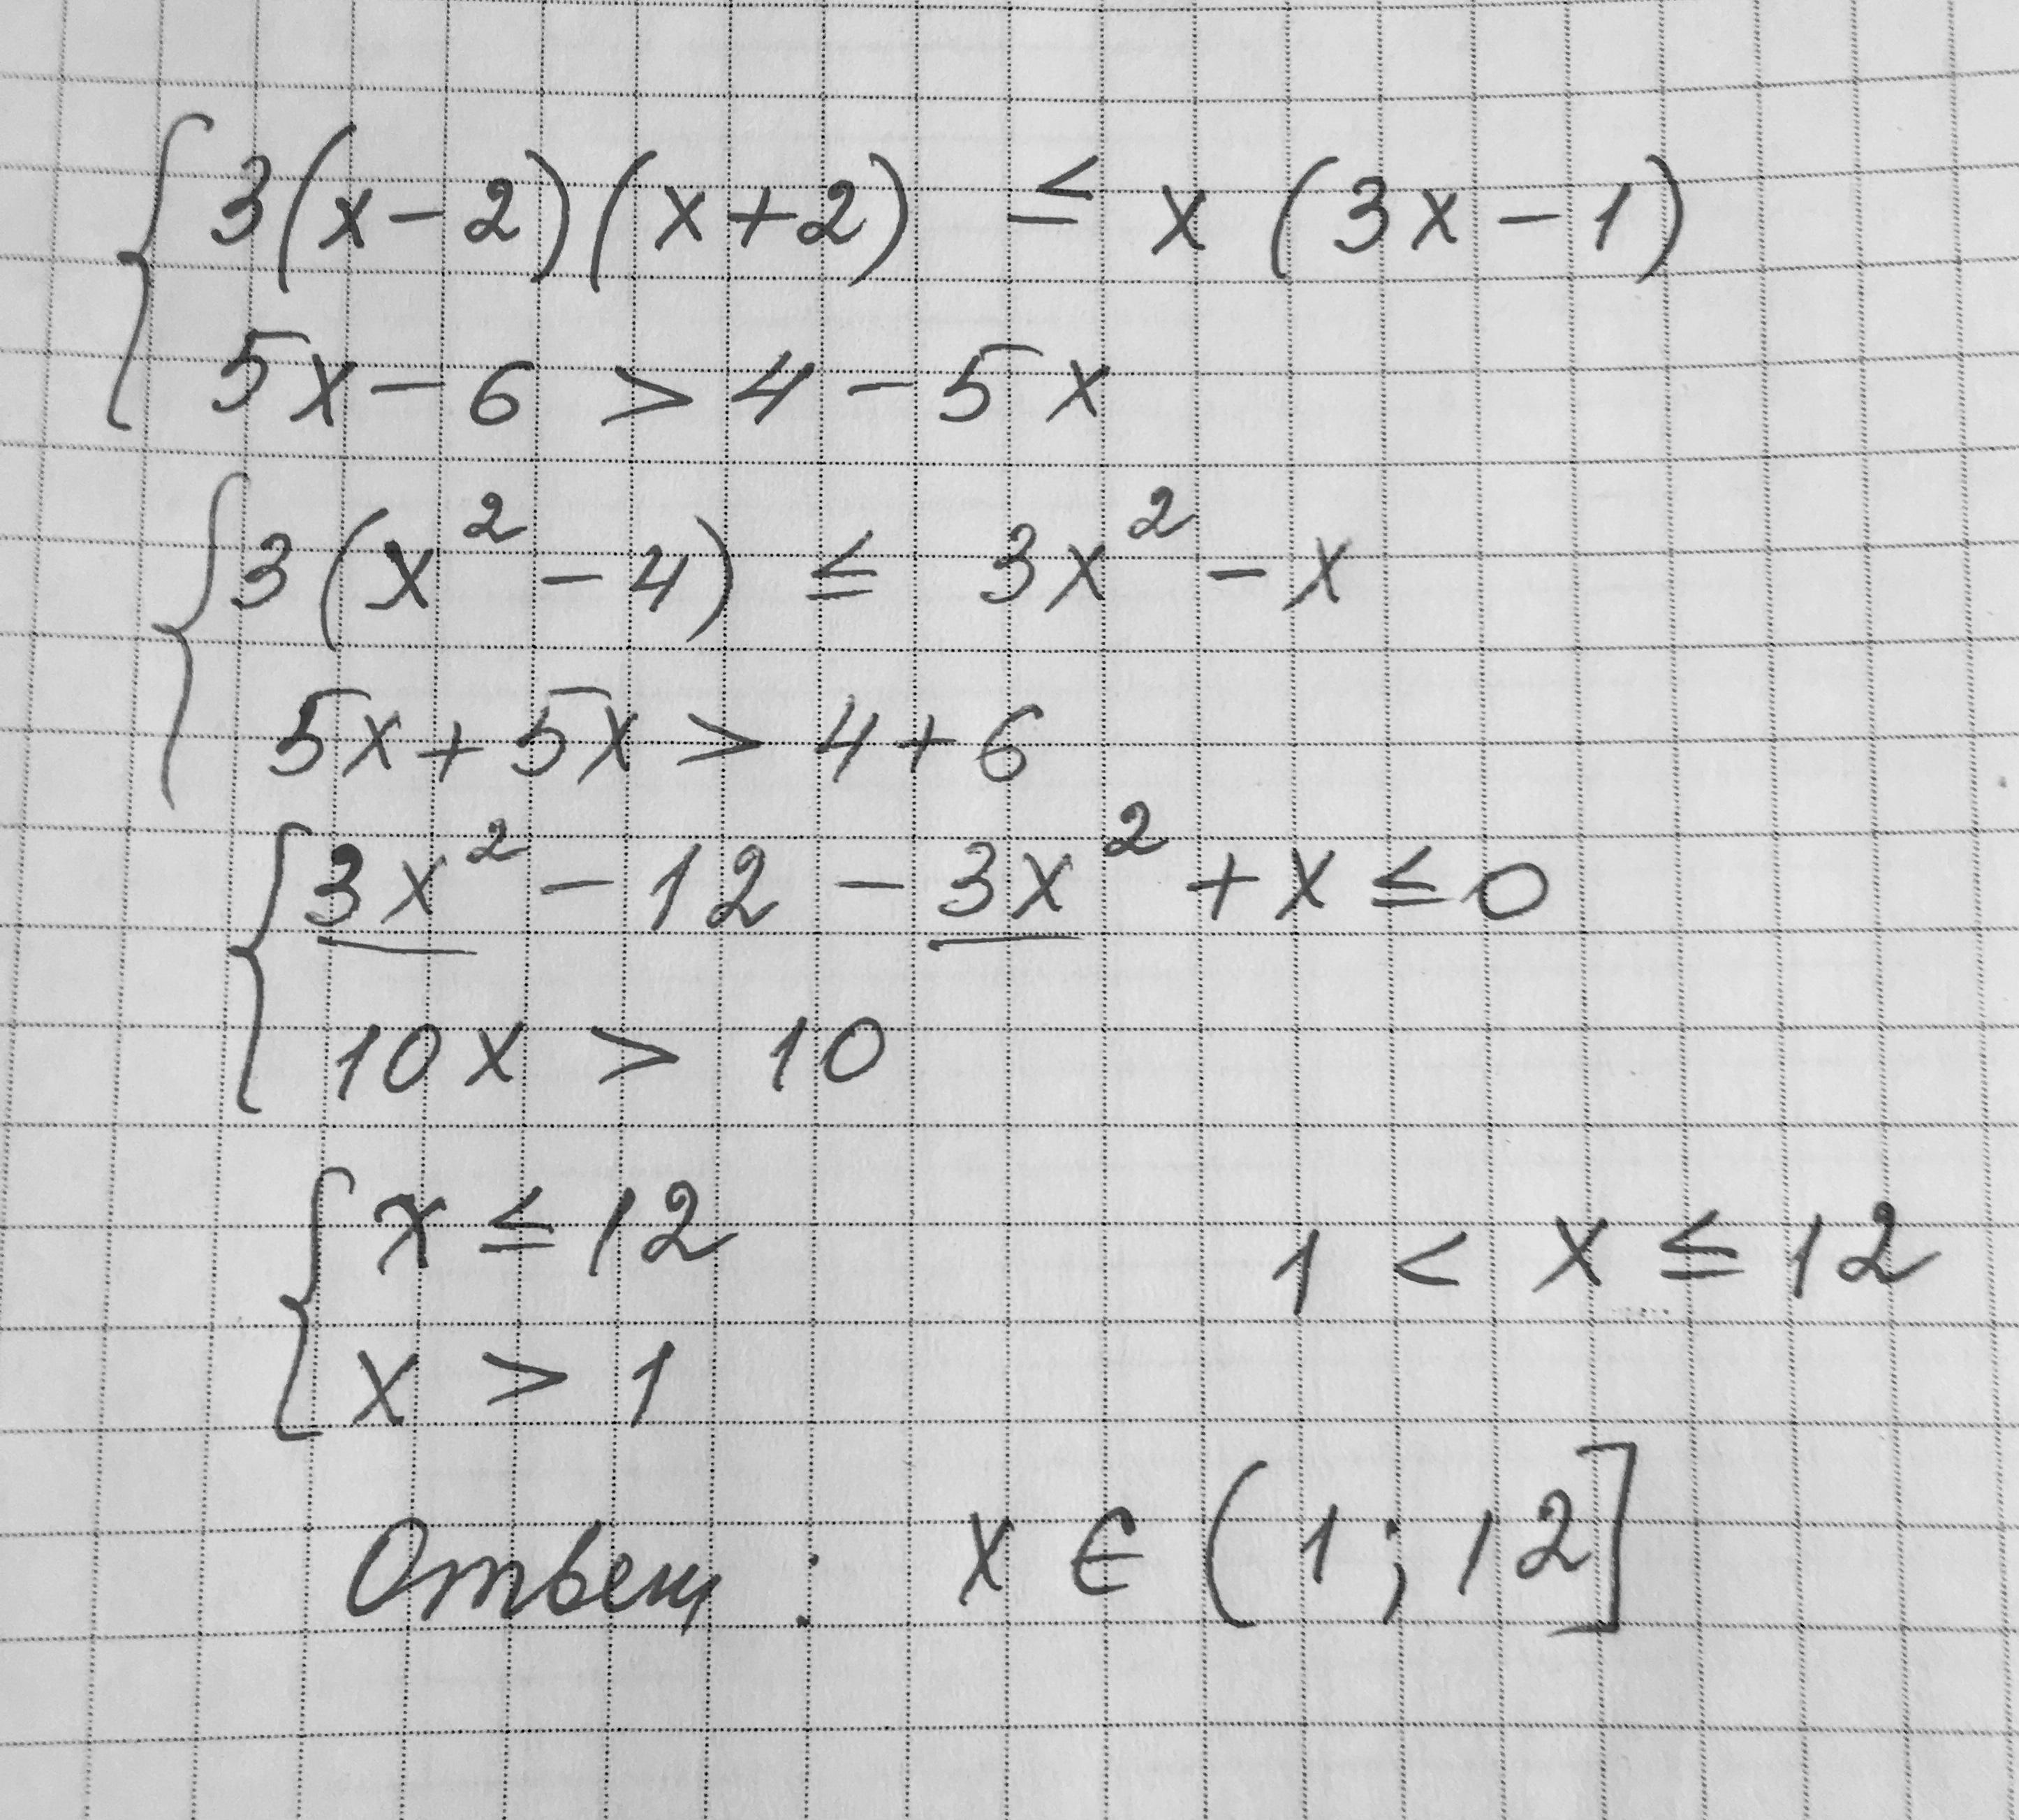 3(x-2)(x+2) ≤ x(3x-1)
5x-6 > 4-5x
3(x²-4) ≤ 3x²-x
5x+5x > 4+6
3x²-12-3x²+x≤0
10x > 10
x ≤ 12
1 < x ≤ 12
x > 1
Ответ: x ∈ (1; 12]